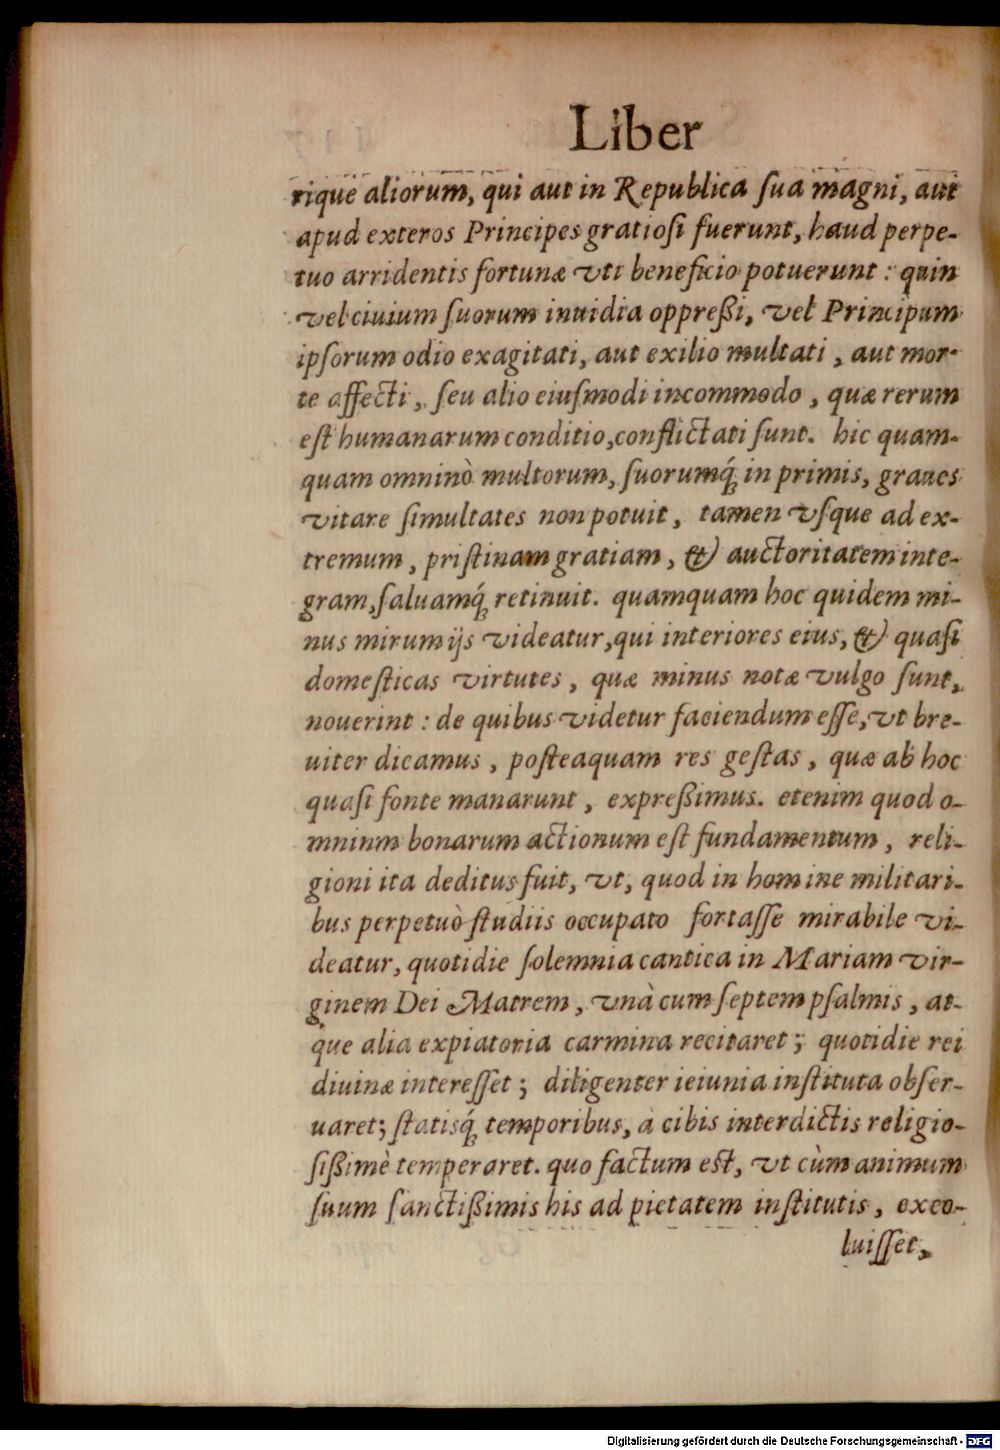 Liber
rique aliorum, qui aut in Republica ſua magni, aut
apud exteros Principes gratioſi fuerunt, haud perpe-
tuo arridentis fortunæ vti beneficio potuerunt: quin
vel ciuium ſuorum inuidia oppreßi, vel Principum
ipſorum odio exagitati, aut exilio multati, aut mor-
te affecti, ſeu alio eiuſmodi incommodo, quæ rerum
eſt humanarum conditio, conflictati ſunt. hic quam-
quam omninò multorum, ſuorumq́; in primis, graues
vitare ſimultates non potuit, tamen vſque ad ex-
tremum, priſtinam gratiam, & auctoritatem inte-
gram, ſaluamq́; retinuit. quamquam hoc quidem mi-
nus mirum ijs videatur, qui interiores eius, & quaſi
domeſticas virtutes, quæ minus notæ vulgo ſunt,
nouerint: de quibus videtur faciendum eſſe, vt bre-
uiter dicamus, poſteaquam res geſtas, quæ ab hoc
quaſi fonte manarunt, expreßimus. etenim quod o-
mninm bonarum actionum eſt fundamentum, reli-
gioni ita deditus fuit, vt, quod in homine militari-
bus perpetuò ſtudiis occupato fortaſſe mirabile vi-
deatur, quotidie ſolemnia cantica in Mariam vir-
ginem Dei Matrem, vnà cum ſeptem pſalmis, at-
que alia expiatoria carmina recitaret; quotidie rei
diuinæ intereſſet; diligenter ieiunia inſtituta obſer-
uaret; ſtatisq́; temporibus, à cibis interdictis religio-
ſißimè temperaret. quo factum est, vt cùm animum
ſuum ſanctißimis his ad pietatem inſtitutis, exco-
luiſſet,
Digitalisierung gefördert durch die Deutsche Forschungsgemeinschaft - DFG